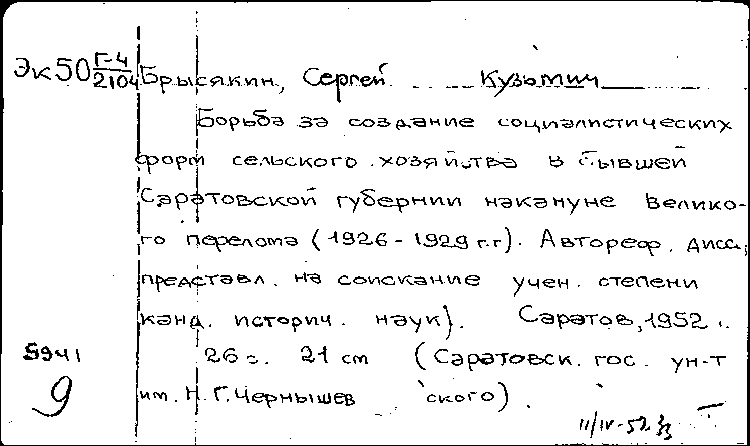 Эк50 Г-4/2104
Брысякин, Сергей Кузьмич
Борьба за создание социалистических
форм сельского хозяйства в бывшей
Саратовской губернии накануне велико-
го перелома (1926-1929 г.г). Автореф. дисс,
представл. на соискание учен. степени
канд. историч. наук). Саратов, 1952 г.
26 с. 21 см (Саратовск. гос. ун-т
им. Н.Г. Чернышев ского).
5941
9
11/IV-52